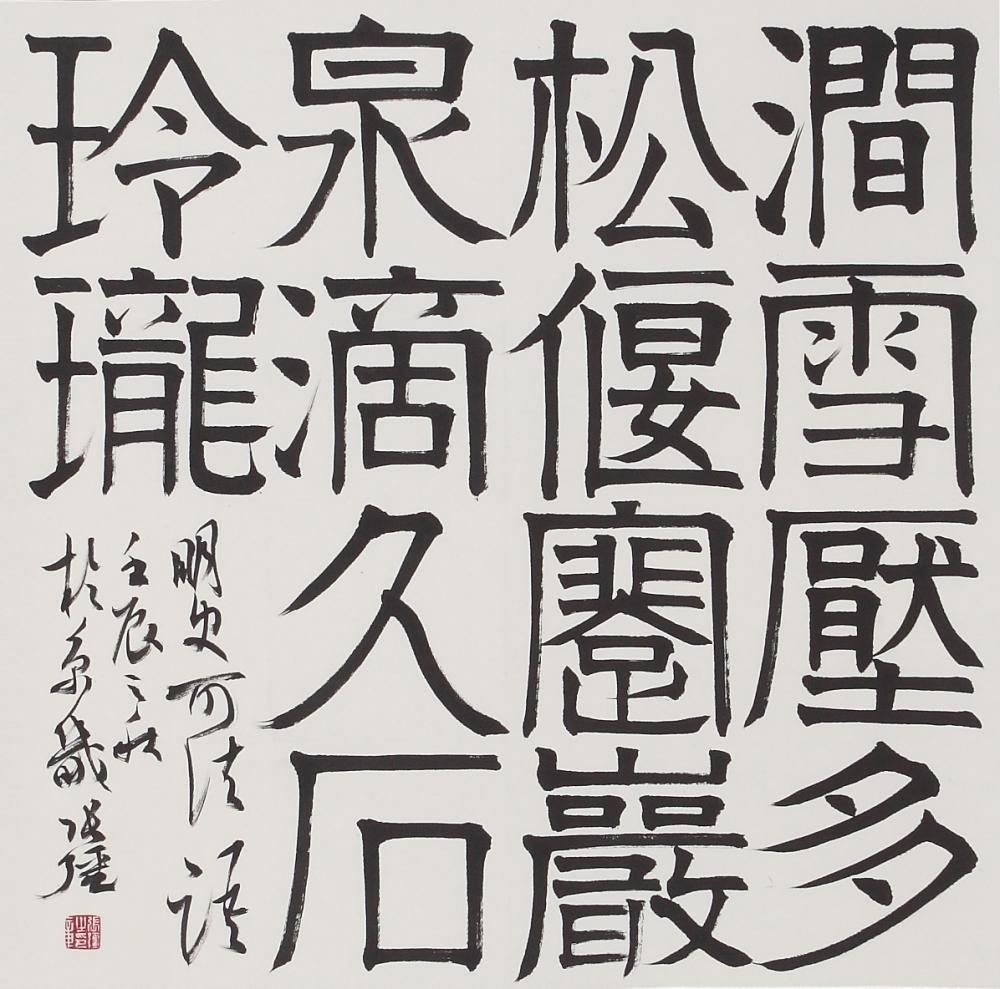 澗雪壓多
松偃蹇巖
泉滴久石
玲瓏
明史可法語
壬辰之秋
於京畿